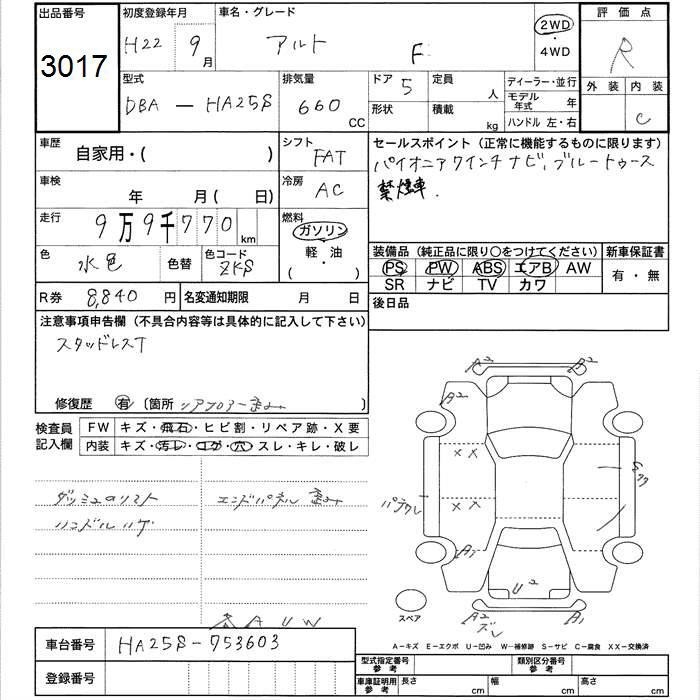 出品番号 初度登録年月 車名・グレード 評価点
3017 H22 9月 アルト F 2WD・4WD R
型式 排気量 ドア 5 定員 人 ディーラー・並行 外装 内装
DBA - HA25S 660 CC 形状 積載 kg モデル年式 年 C
ハンドル 左・右
車歴 自家用・( ) シフト FAT セールスポイント (正常に機能するものに限ります)
パイオニア7インチナビ、ブルートゥース
車検 年 月( 日) 冷房 AC 禁煙車.
走行 9万9千770km 燃料 ガソリン 軽・油 ( ・ )
色 水色 色替 色コード ZKS
装備品 (純正品に限り○をつけてください) 新車保証書
PS PW ABS エアB AW 有・無
SR ナビ TV カワ
R券 8,840円 名変通知期限 月 日 後日品
注意事項申告欄 (不具合内容等は具体的に記入して下さい)
スタッドレスT
修復歴 有 〔箇所 リアフロアー歪み 〕
検査員記入欄 FW キズ・飛石・ヒビ割・リペア跡・X要
内装 キズ・汚レ・コゲ・穴・スレ・キレ・破レ
ダッシュのリスト エンドパネル 歪み
ハンドルハゲ
A U W
A2 A2
A2
XX
XX
パテクレ
A1
U2
A2 ズレ A1
スペア
A−キズ E−エクボ U−凹み W−補修跡 S−サビ C−腐食 XX−交換済
車台番号 HA25S-753603
登録番号
型式指定番号 参考 類別区分番号 参考
車庫証明用 参考 長さ cm 幅 cm 高さ cm